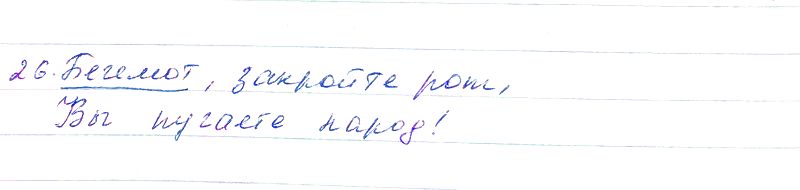 26. Бегемот, закройте рот,
Вы пугаете народ!